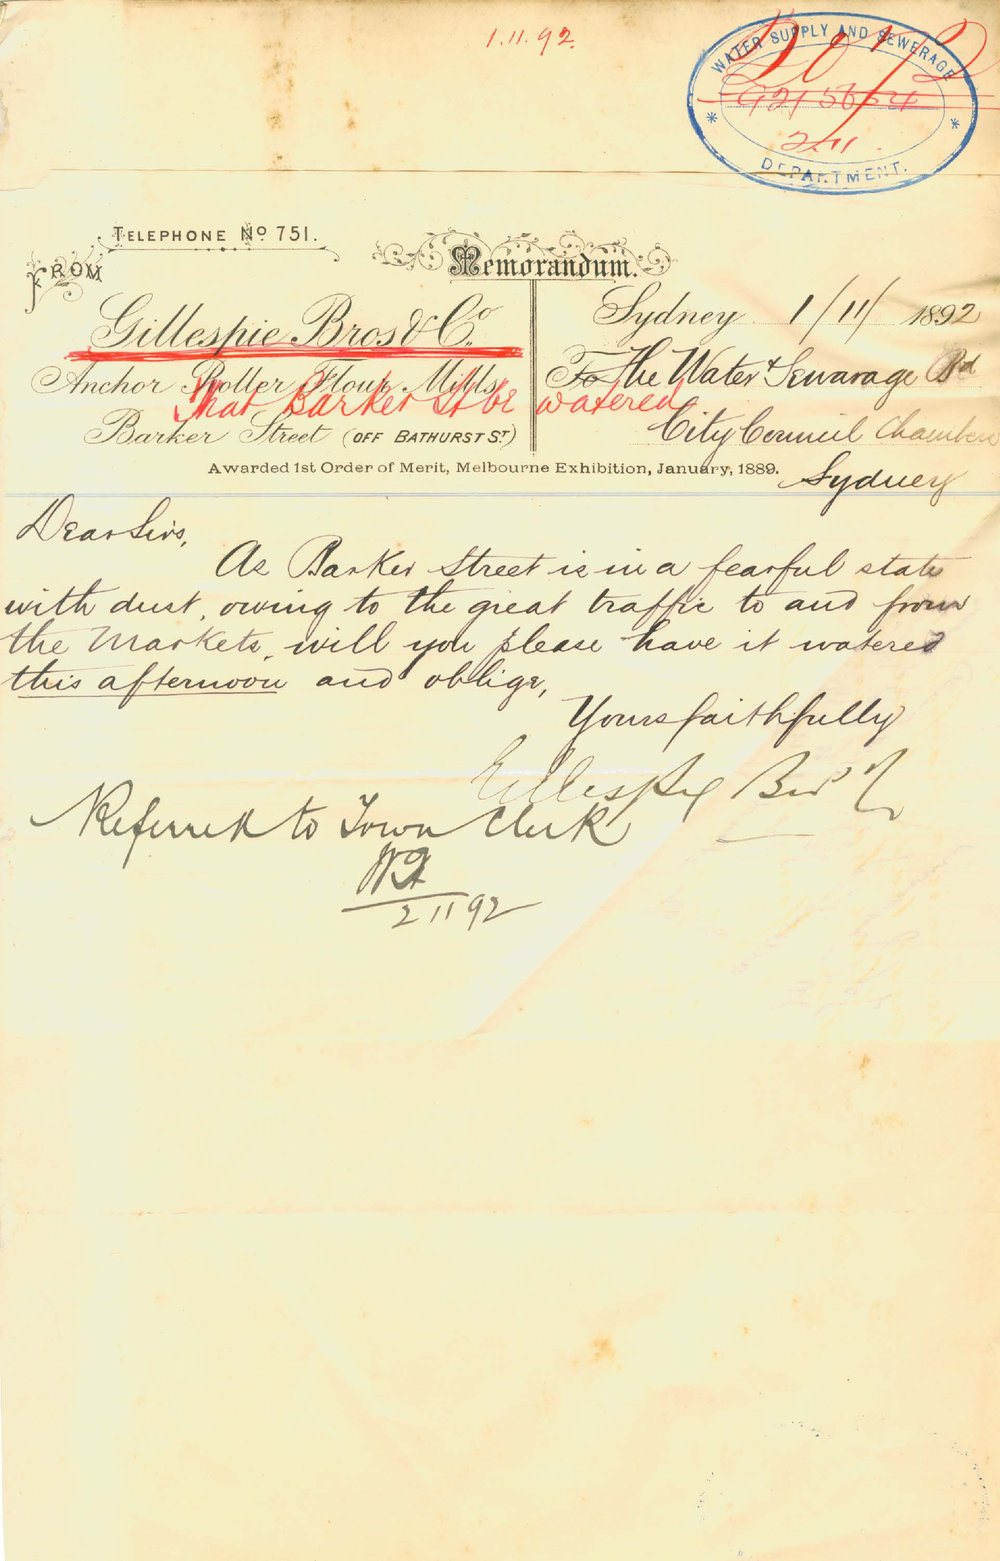 1.11.92.
WATER SUPPLY AND SEWERAGE
92/5654
2.11.
DEPARTMENT.
TELEPHONE No 751.
FROM
Memorandum.
Gillespie Bros & Co.
Sydney 1/11/1892
Anchor Roller Flour Mills
To The Water & Sewarage Bd
That Barker St be watered
Barker Street (OFF BATHURST ST)
City Council Chambers
Awarded 1st Order of Merit, Melbourne Exhibition, January, 1889.
Sydney
Dear Sirs,
As Barker Street is in a fearful state
with dust, owing to the great traffic to and from
the Markets, will you please have it watered
this afternoon and oblige,
Yours faithfully
Gillespie Bros
Referred to Town Clerk
2 11 92